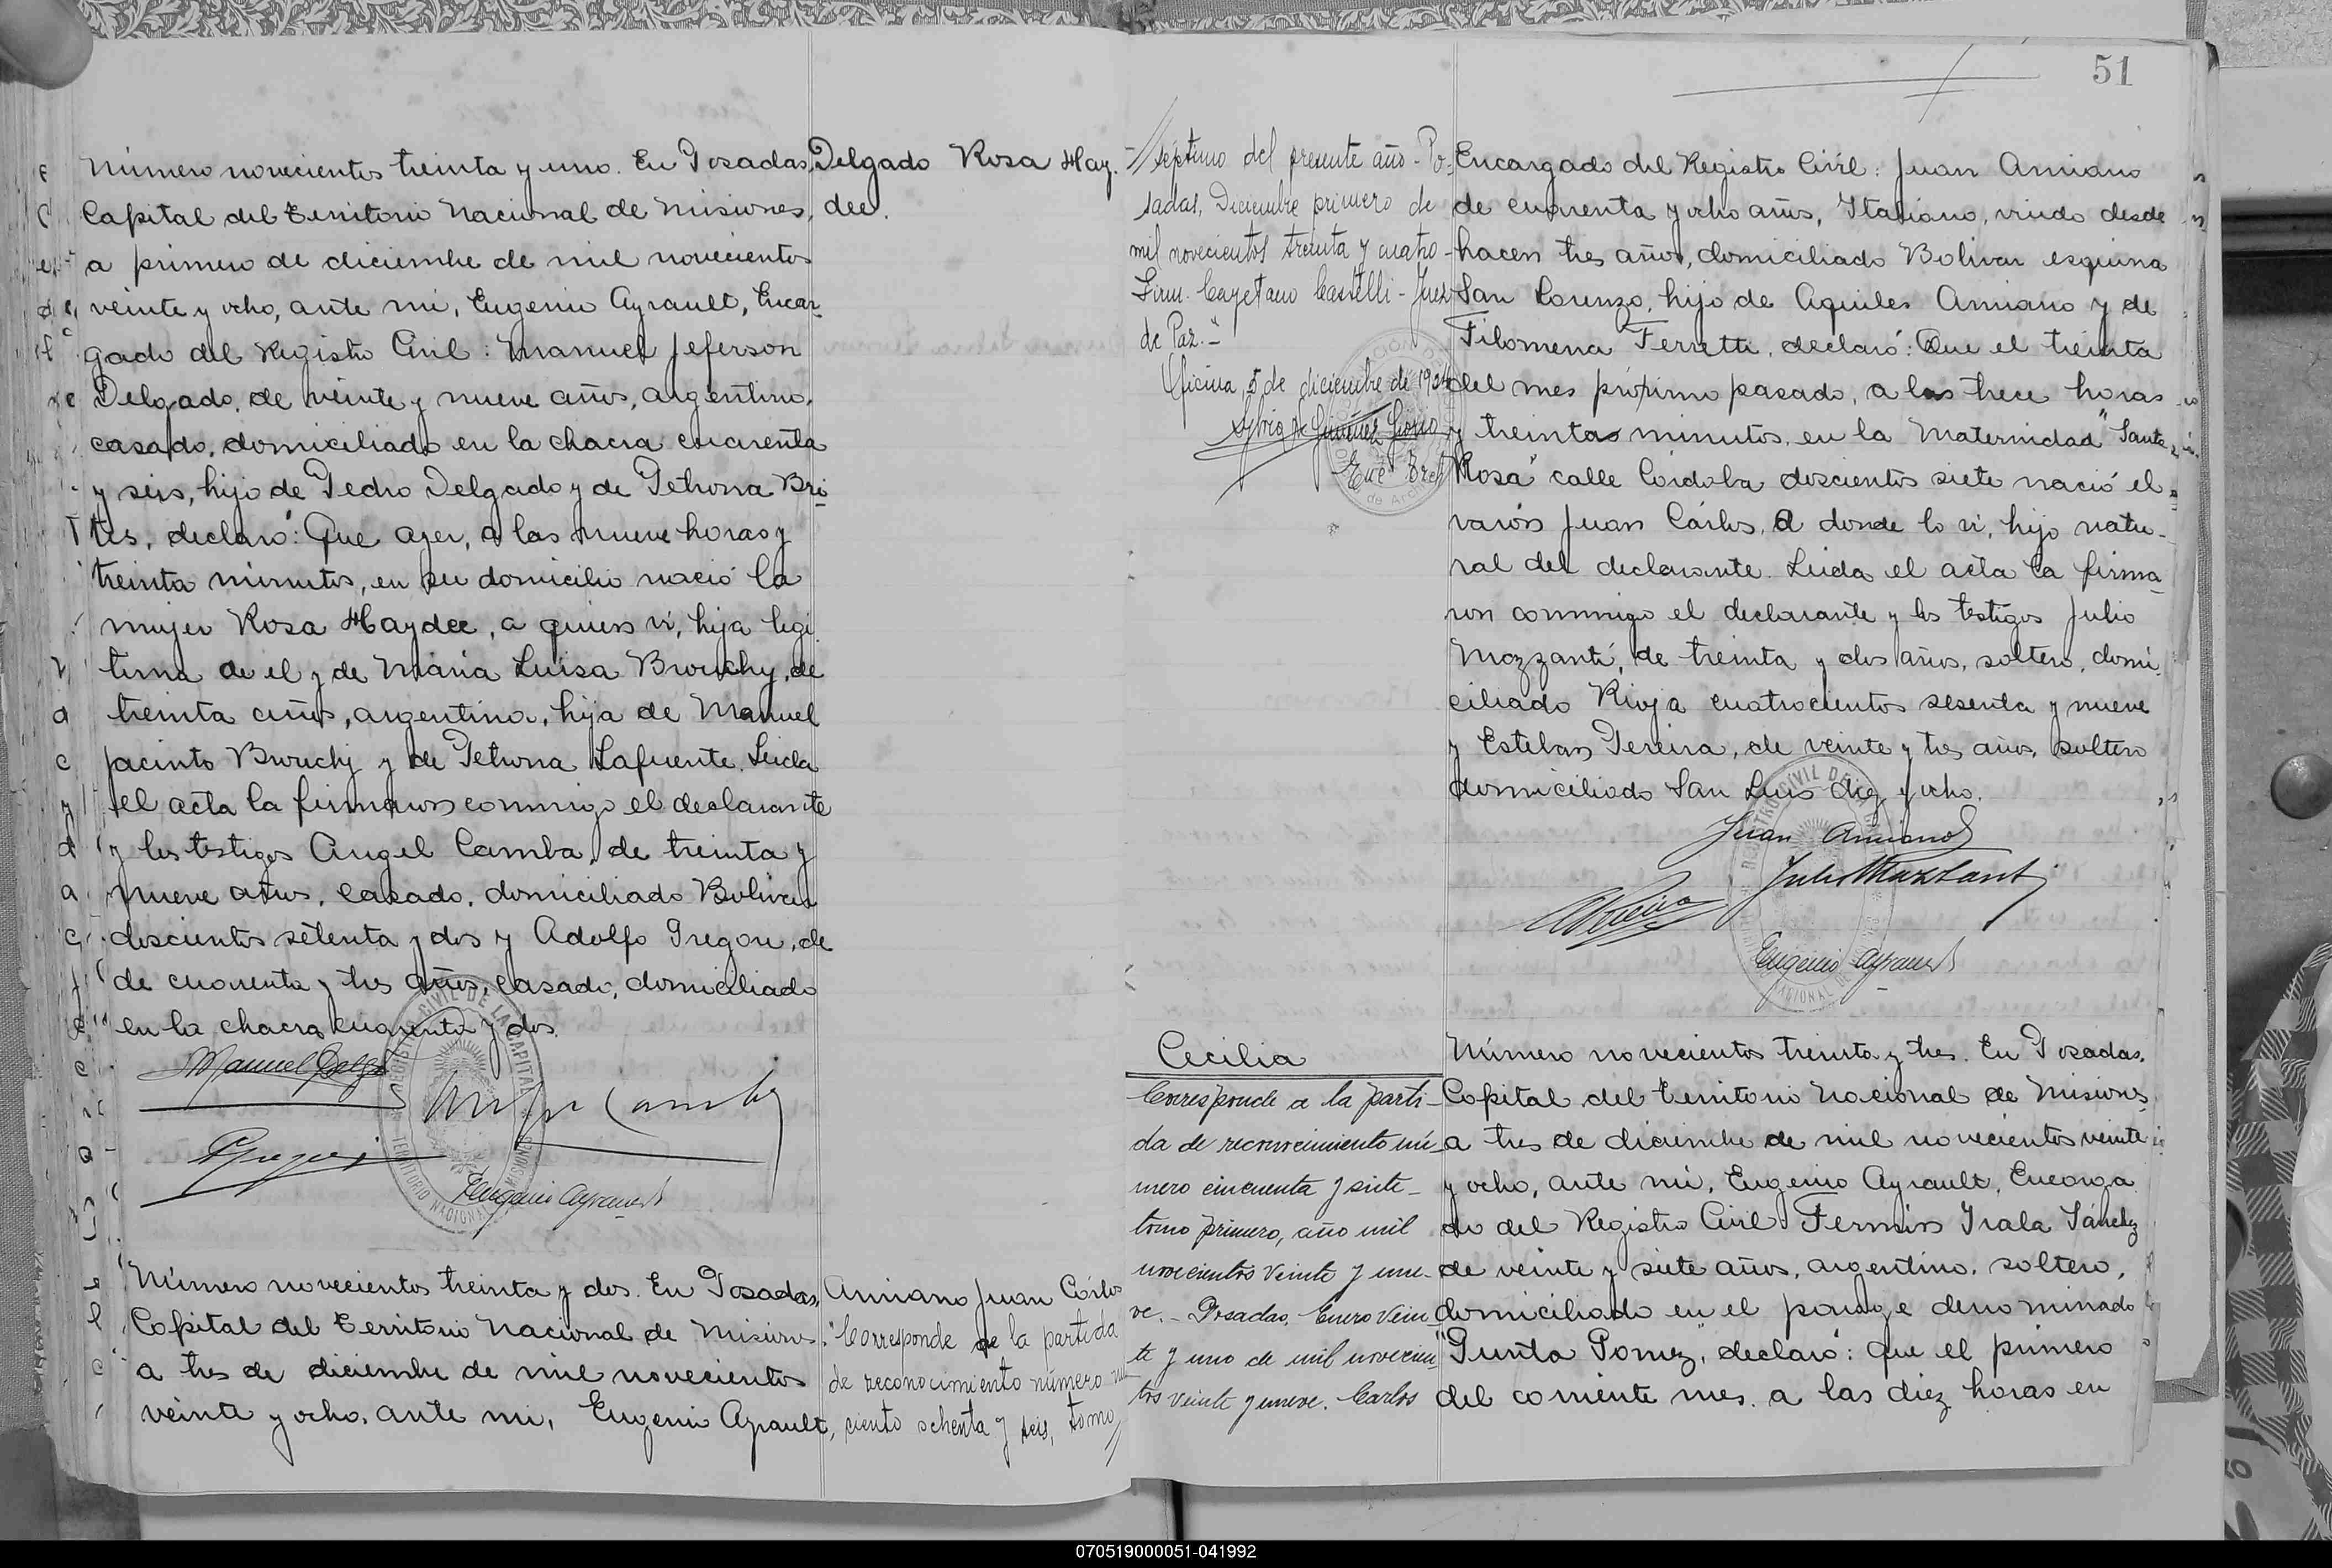 Número novecientos treinta y uno. En Posadas,
Capital del Territorio Nacional de Misiones,
a primero de diciembre de mil novecientos
veinte y ocho, ante mi, Eugenio Ayrault, Encar-
gado del Registro Civil: Manuel Jeferson
Delgado, de veinte y nueve años, argentino,
casado, domiciliado en la chacra cuarenta
y seis, hijo de Pedro Delgado y de Petrona Bri-
tes, declaró: Que ayer, a las nueve horas y
treinta minutos, en su domicilio nació la
mujer Rosa Haydee, a quien vi, hija legi-
tima de el y de Maria Luisa Brouchy, de
treinta años, argentina, hija de Manuel
Jacinto Brouchy y de Petrona Lafuente. Leida
el acta la firmaron conmigo el declarante
y los testigos Angel Camba, de treinta y
nueve años, casado, domiciliado Bolivar
doscientos setenta y dos y Adolfo Gregori, de
de cuarenta y tres años, casado, domiciliado
en la chacra cuarenta y dos.
Manuel Delg
Eugenio Ayrault
Delgado Rosa Hay-
dee.
Número novecientos treinta y dos. En Posadas,
Capital del Territorio Nacional de Misiones,
a tres de diciembre de mil novecientos
veinte y ocho, ante mi, Eugenio Ayrault,
Amiano Juan Cárlos
"Corresponde a la partida
de reconocimiento número
ciento ochenta y seis, tomo//
51
//séptimo del presente año - Po-
sadas, Diciembre primero de
mil novecientos treinta y cuatro -
Firm. Cayetano Castelli - Juez
de Paz.-"
Oficina, 5 de diciembre de 1934
Encargado del Registro Civil: Juan Amiano
de cuarenta y ocho años, Italiano, viudo desde
hacen tres años, domiciliado Bolivar esquina
San Lorenzo, hijo de Aquiles Amiano y de
Filomena Ferretti, declaró: Que el treinta
del mes próximo pasado, a las trece horas
y treinta minutos, en la Maternidad "Santa
Rosa" calle Córdoba doscientos siete nació el
varón Juan Cárlos, a donde lo vi, hijo natu-
ral del declarante. Leida el acta la firma-
ron conmigo el declarante y los testigos Julio
Mozzanti, de treinta y dos años, soltero, domi-
ciliado Rioja cuatrocientos sesenta y nueve
y Esteban Pereira, de veinte y tres años, soltero
domiciliado San Luis diez y ocho.
Juan Amiano
Julio Mazzanti
Eugenio Ayrault
Cecilia
Corresponde a la parti-
da de reconocimiento nú-
mero cincuenta y siete -
tomo primero, año mil
novecientos veinte y nue-
ve. - Posadas, Enero vein-
te y uno de mil novecien-
tos veinte y nueve. Carlos
Número novecientos treinta y tres. En Posadas,
Capital del Territorio Nacional de Misiones,
a tres de diciembre de mil novecientos veinte
y ocho, ante mi, Eugenio Ayrault, Encarga
do del Registro Civil: Fermin Irala Sánchez
de veinte y siete años, argentino, soltero,
domiciliado en el paraje denominado
"Punta Pomez", declaró: Que el primero
del corriente mes, a las diez horas en
070519000051-041992